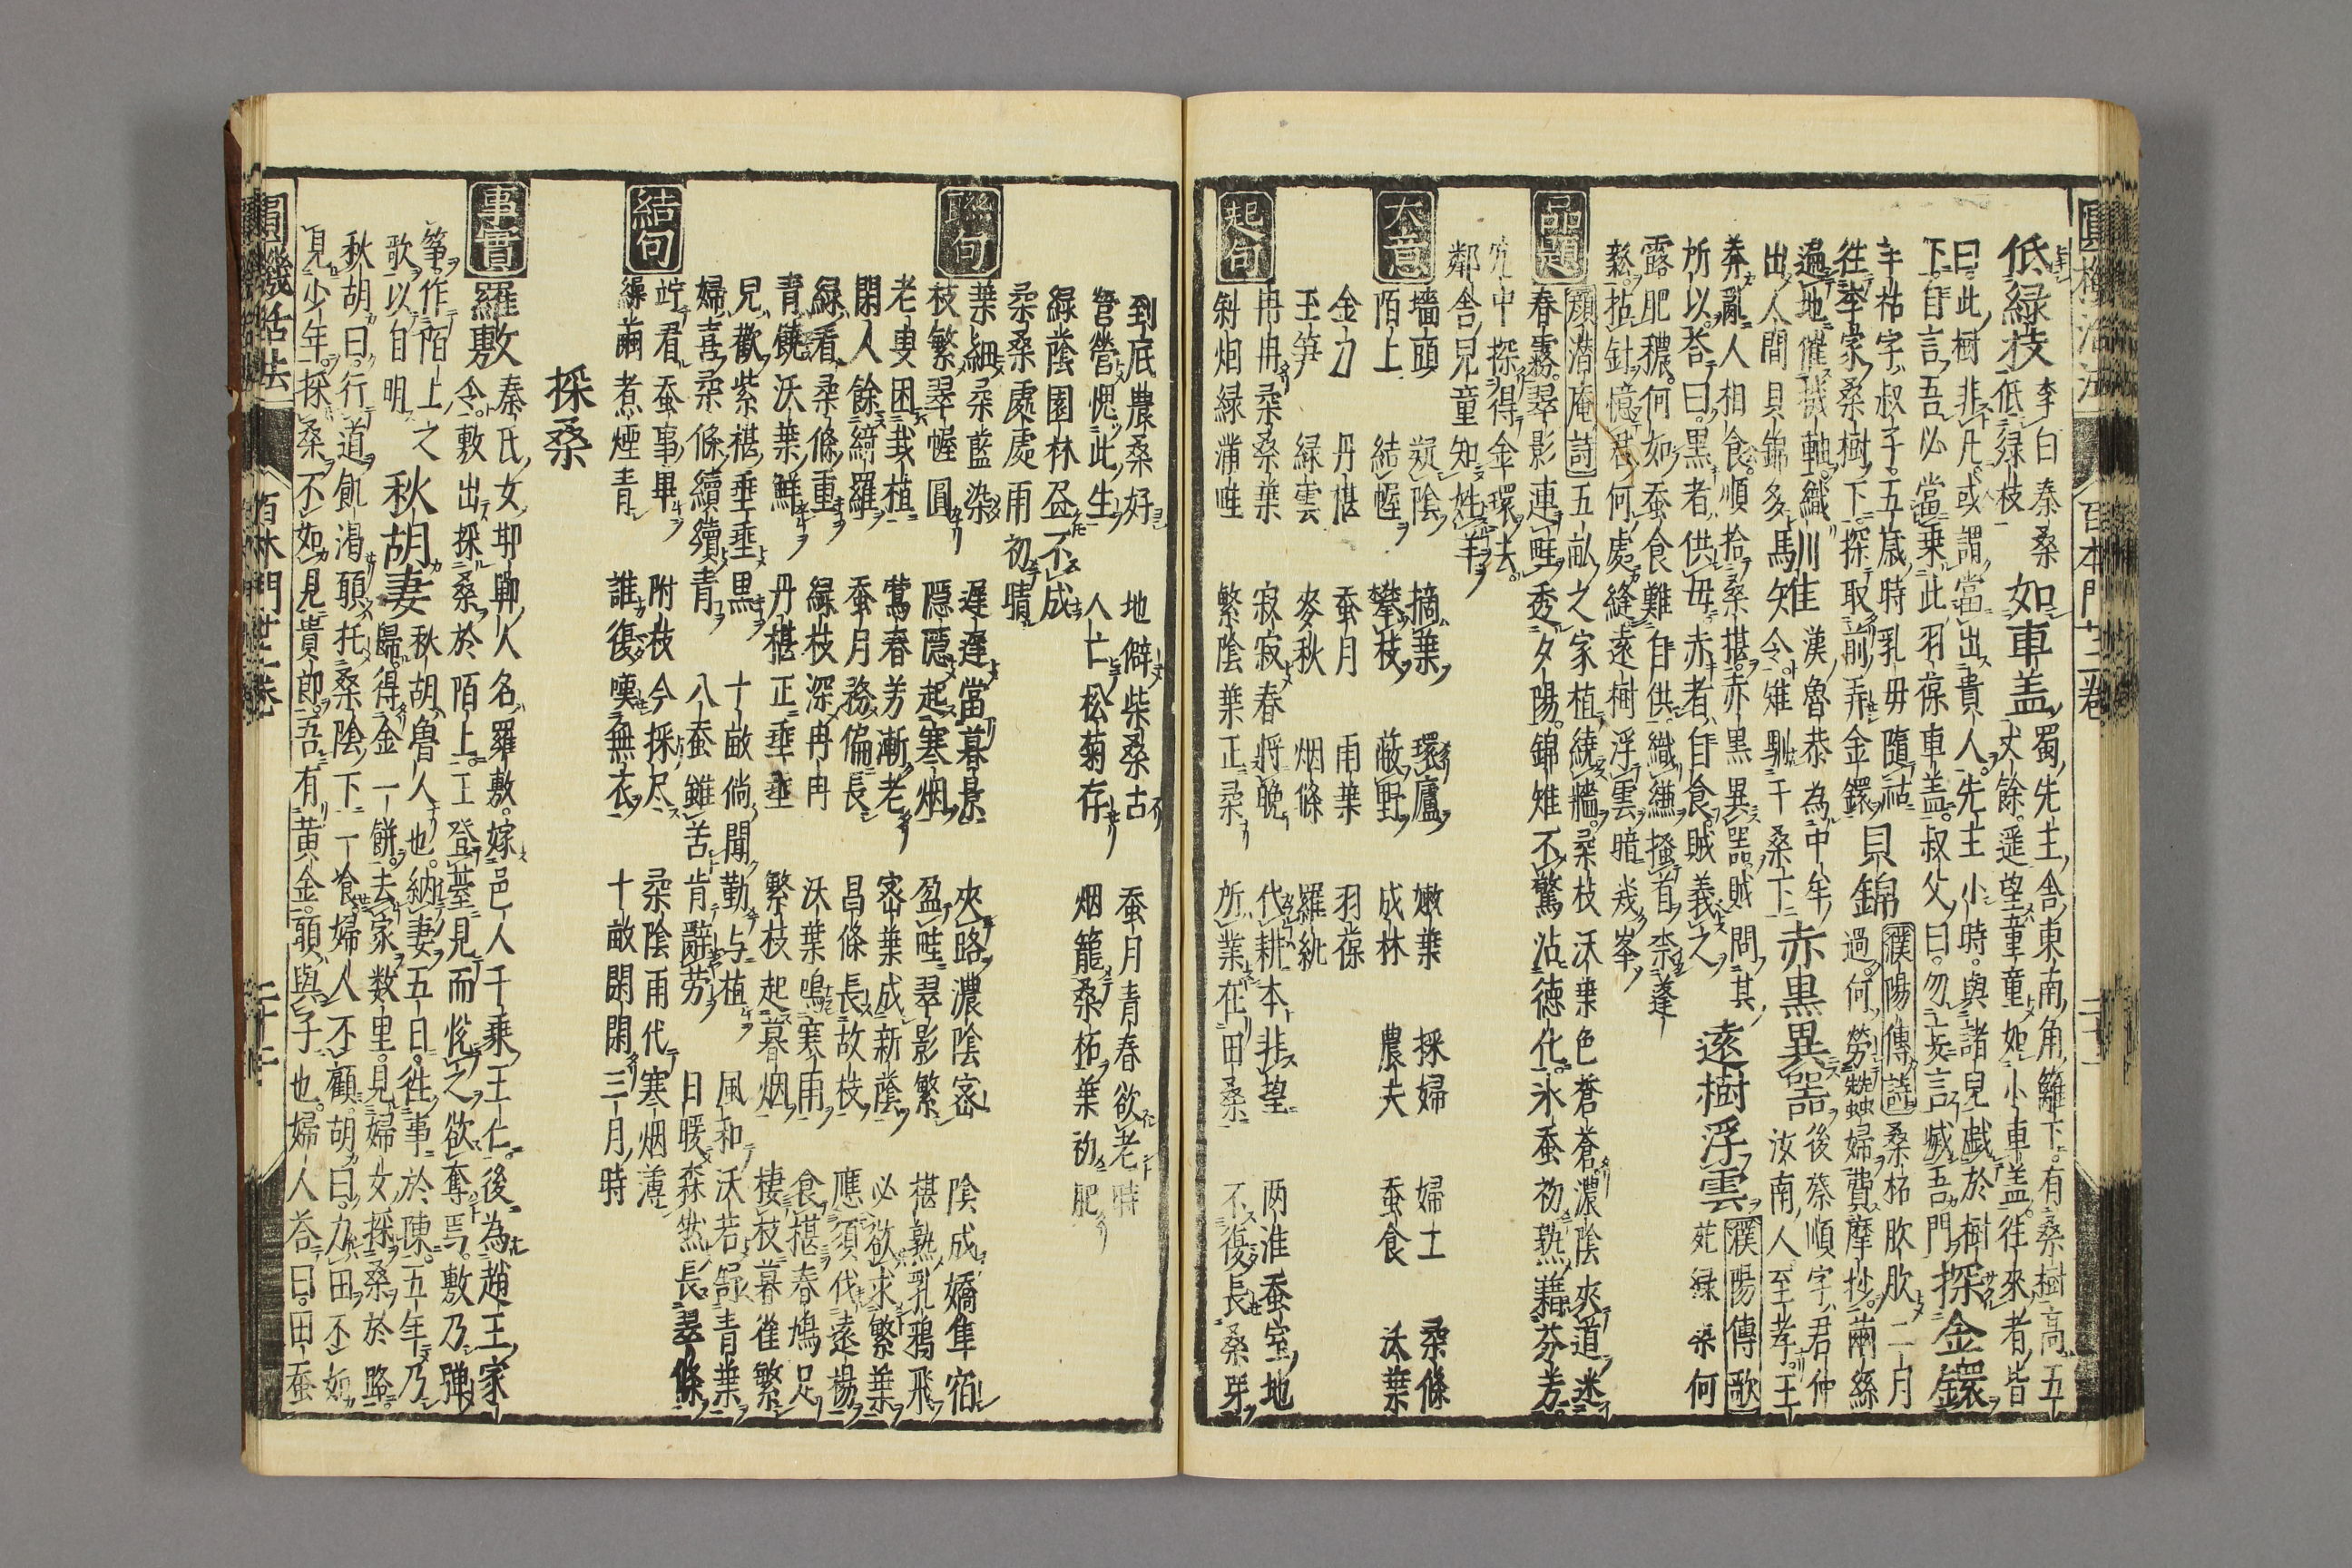 圓機活法 百木門廿二卷
低緑枝 李白秦桑低緑枝 如車盖 蜀先主舎東南角籬下有桑樹高五丈餘遥望童童如小車盖往來者皆
曰此樹非凡或謂當出貴人先主小時與諸兒戯於樹
下自言吾必當乗此羽葆車盖叔父曰勿妄言滅吾門 探金鐶
羊祜字叔子五歳時乳母隨祜
往李家桑樹下探取前弄金鐶 貝錦 濮陽傳詩 桑柘
過地催
出人間貝錦多 馴雉 漢魯恭為中牟令雉馴于桑下 赤黒異器 後蔡順字君仲汝南人至孝王
莽亂人相食順拾桑椹赤黒異器賊問其
所以荅曰黒者供母赤者自食賊義之 遠樹浮雲 濮陽傳歌 緑桑何
露肥穠何如蚕食難自供織縑搔首柰蓬
鬆拈針憶君何處縫遠樹浮雲暗幾峯
品題 顔潜庵詩 五畝之家植繞牆桑枝沃葉色蒼蒼濃陰夾道迷
春霧翠影連畦透夕陽錦雉不驚沾徳化氷蚕初熟藉芬芳
中探得金環去
鄰舎兒童知姓羊
大意 墻頭 凝陰 摘葉 環廬 嫩葉 採婦 婦士 桑條
陌上 結幄 攀枝 蔽野 成林 農夫 蚕食 沃葉
金刀 丹椹 蚕月 雨葉 羽葆
玉笋 緑雲 麥秋 烟條 羅紈
起句 冉冉桑葉 寂寂春將晩 代耕本非望 两淮蚕室地
斜畑緑蒲畦 繁陰葉正柔 所業在田桑 不復長桑芽
到底農桑好 地僻柴桑古 蚕月青春欲老時
營營愧此生 人亡松菊存 烟籠桑柘葉初肥
緑蔭園林盆不成
柔桑處處雨初晴
聯句 葉細柔藍染 遅遅當暮景 夾路濃陰密 陰成嬌隼宿
枝繁翠幄圓 隠隠起寒烟 盈畦翠影繁 椹熟乳鴉飛
老叟困我植 鶯春芳漸老 密葉成新蔭 必欲求繁葉
閑人餘綺羅 蚕月務偏長 昌條長故枝 應須伐遠楊
緑看桑條重 緑枝深冉冉 沃葉鳴寒雨 食椹春鳩足
青饒沃葉鮮 丹椹正垂垂 繁枝起暮烟 棲枝暮雀繁
兒歡紫椹垂垂黒 十畝倘聞勤与植 風和沃若舒青葉
婦喜柔條續續青 八蚕雖苦肯辭劳 日暖森然長翠條
結句 竚看蚕事畢 附枝今採尺 柔陰雨代寒烟薄
繰繭煮煙青 誰復嘆無衣 十畝閑閑三月時
採桑
事實 羅敷 秦氏女邯鄲人名羅敷嫁邑人千乗王仁後為趙王家
令敷出採桑於陌上王登䑓見而悦之欲奪焉敷乃弾
筝作陌上之
歌以自明 秋胡妻 秋胡魯人也納妻五日往事於陳五年乃
歸得金一餅去家数里見婦女採桑於路
秋胡曰行道飢渇頭托桑陰下一飡婦人不顧胡曰力田不如
見少年採桑不如見貴郎吾有黄金頭與子也婦人荅曰田蚕
圓機活法 百木門廿二卷